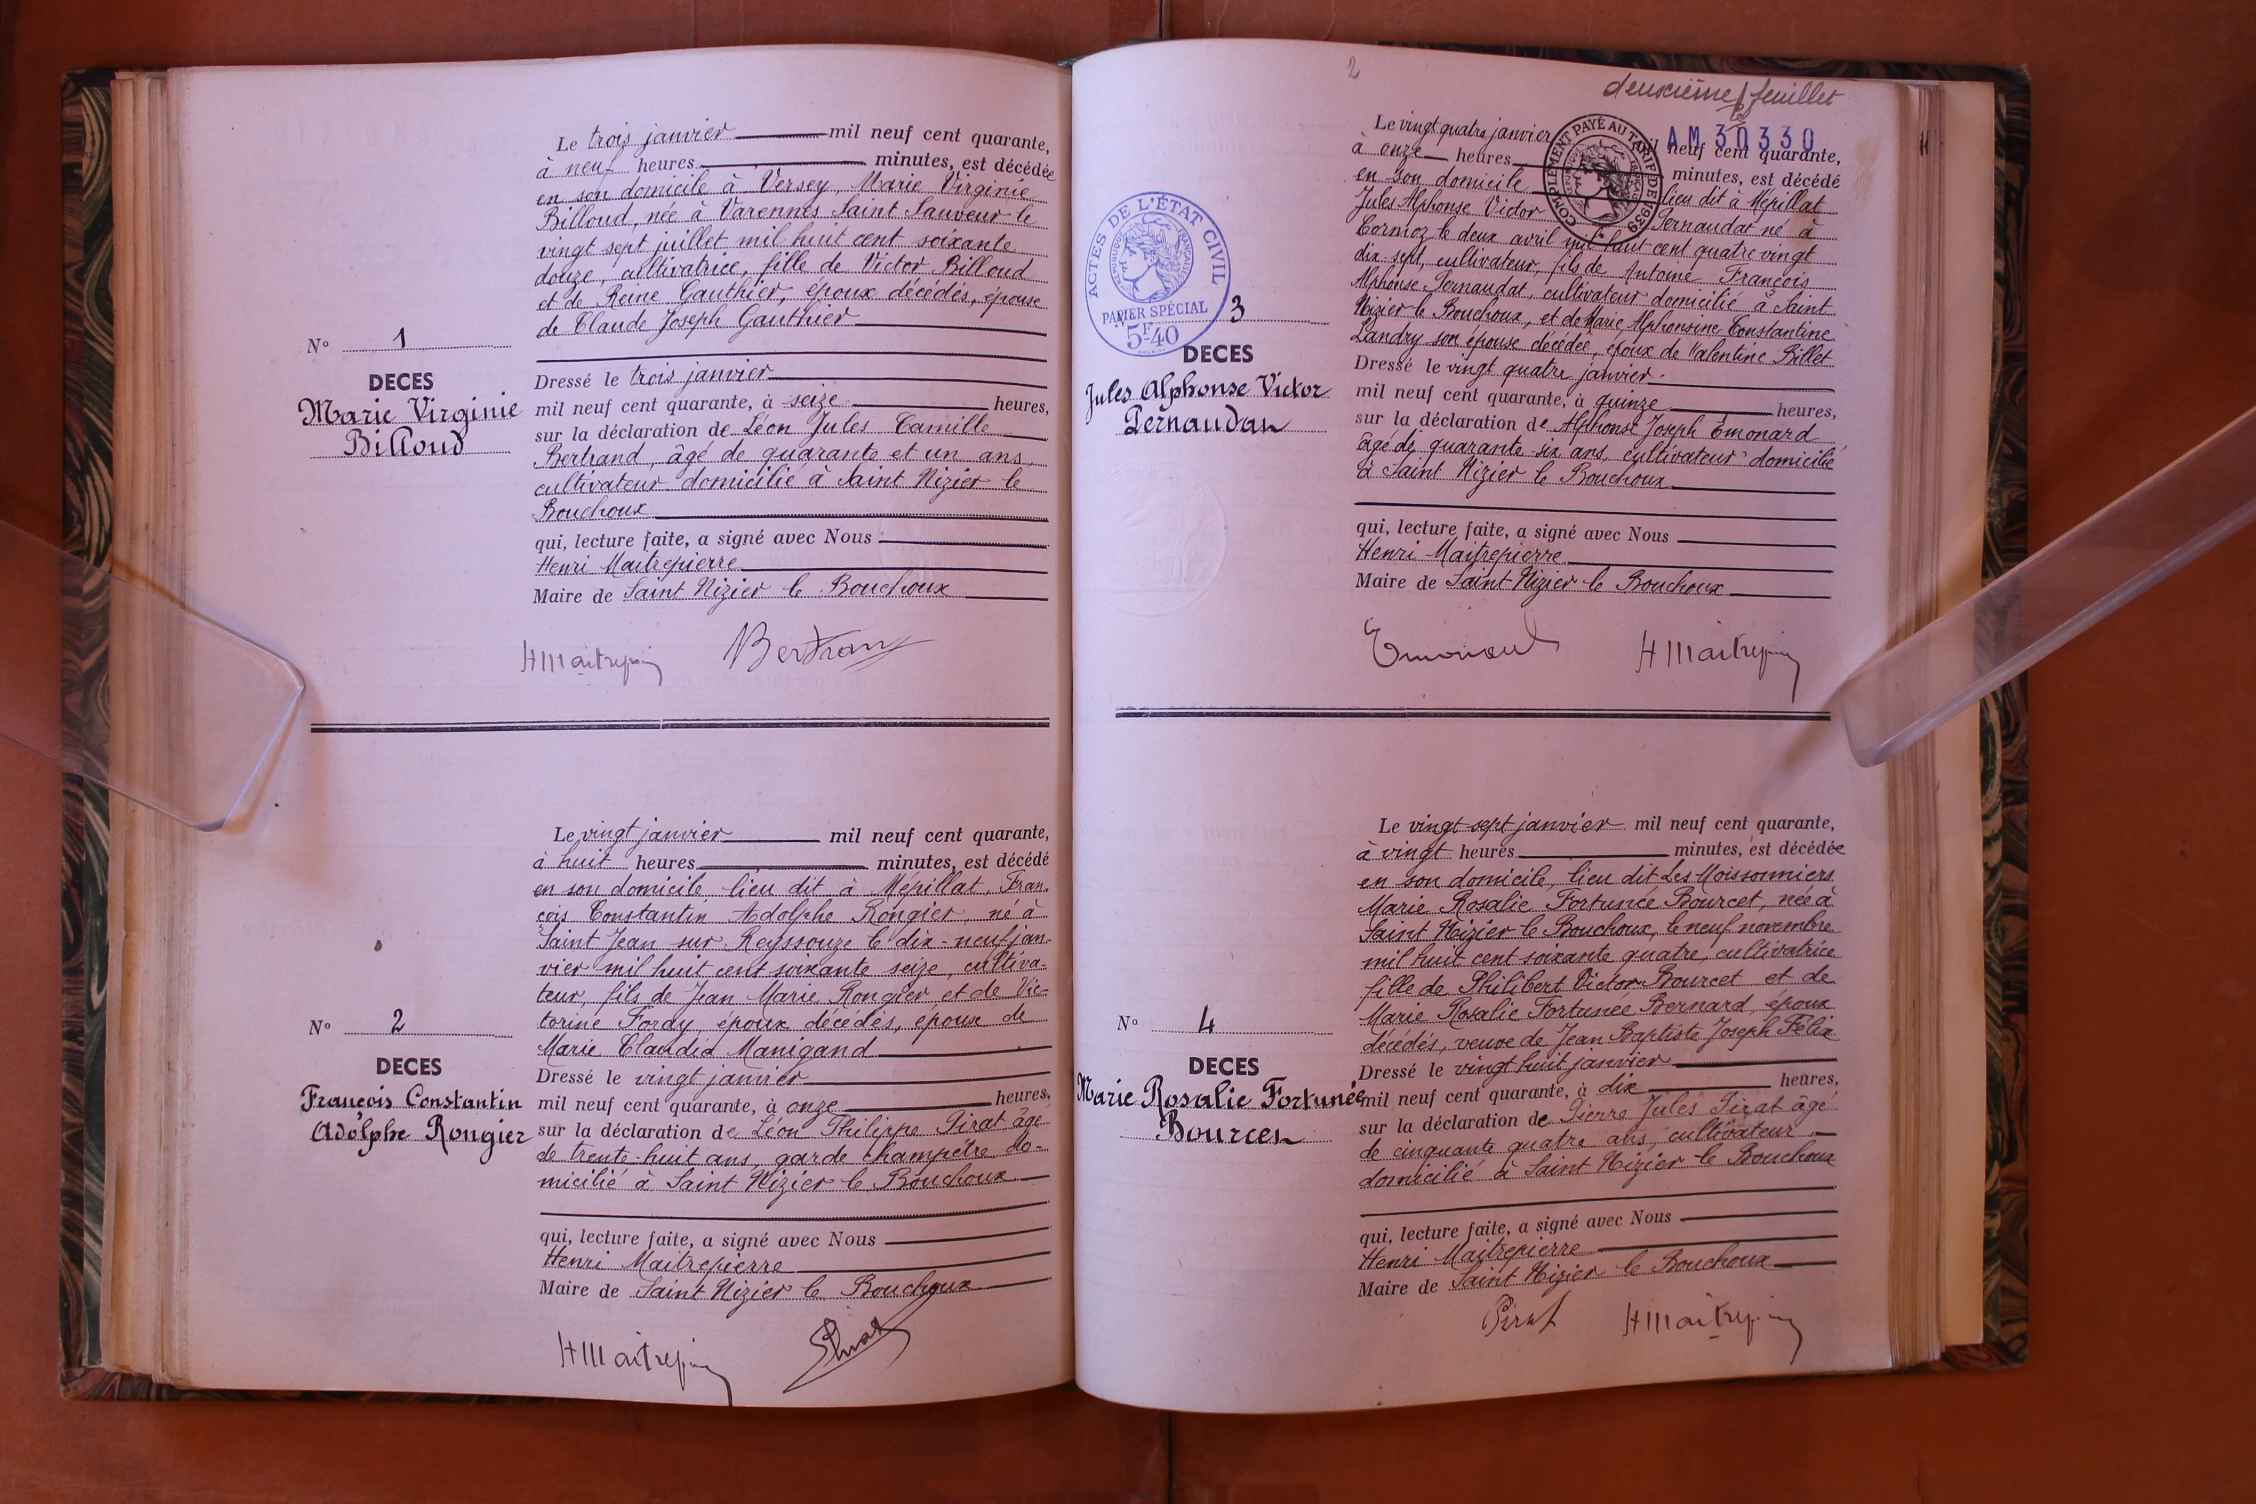 Le trois janvier mil neuf cent quarante,
à neuf heures minutes, est décédée
en son domicile à Versey, Marie Virginie
Billoud, née à Varennes Saint Sauveur le
vingt sept juillet mil huit cent soixante
douze, cultivatrice, fille de Victor Billoud
et de Reine Gauthier, époux décédés, épouse
de Claude Joseph Gauthier
N° 1
DECES
Marie Virginie
Billoud
Dressé le trois janvier
mil neuf cent quarante, à seize heures,
sur la déclaration de Léon Jules Camille
Bertrand, âgé de quarante et un ans,
cultivateur domicilié à Saint Nizier le
Bouchoux
qui, lecture faite, a signé avec Nous
Henri Maitrepierre
Maire de Saint Nizier le Bouchoux
HMaitrepierre Bertrand
Le vingt janvier mil neuf cent quarante,
à huit heures minutes, est décédé
en son domicile lieu dit à Mépillat, Fran-
çois Constantin Adolphe Rongier, né à
Saint Jean sur Reyssouze le dix-neuf jan-
vier mil huit cent soixante seize, cultiva-
teur, fils de Jean Marie Rongier et de Vic-
torine Foray, époux décédés, époux de
Marie Claudia Manigand
N° 2
DECES
François Constantin
Adolphe Rongier
Dressé le vingt janvier
mil neuf cent quarante, à onze heures,
sur la déclaration de Léon Philippe Pirat âgé
de trente-huit ans, garde champêtre do-
micilié à Saint Nizier le Bouchoux
qui, lecture faite, a signé avec Nous
Henri Maitrepierre
Maire de Saint Nizier le Bouchoux
HMaitrepierre
2
deuxième feuillet
AM 30330
COMPLEMENT PAYÉ AU TARIF DE 1939
Le vingt quatre janvier mil neuf cent quarante,
à onze heures minutes, est décédé
en son domicile lieu dit à Mépillat
Jules Alphonse Victor Pernaudat né à
Cormoz le deux avril mil huit cent quatre vingt
dix sept, cultivateur, fils de Antoine François
Alphonse Pernaudat, cultivateur domicilié à Saint
Nizier le Bouchoux, et de Marie Alphonsine Constantine
Landry son épouse décédée, époux de Valentine Billet
ACTES DE L'ÉTAT CIVIL
PAPIER SPÉCIAL
5F40
3
DECES
Jules Alphonse Victor
Pernaudat
Dressé le vingt quatre janvier
mil neuf cent quarante, à quinze heures,
sur la déclaration de Alphonse Joseph Emonard
âgé de quarante six ans, cultivateur domicilié
à Saint Nizier le Bouchoux
qui, lecture faite, a signé avec Nous
Henri Maitrepierre
Maire de Saint Nizier le Bouchoux
Emonard HMaitrepierre
Le vingt sept janvier mil neuf cent quarante,
à vingt heures minutes, est décédée
en son domicile, lieu dit Les Moissonniers
Marie Rosalie Fortunée Bourcet, née à
Saint Nizier le Bouchoux, le neuf novembre
mil huit cent soixante quatre, cultivatrice
fille de Philibert Victor Bourcet et de
Marie Rosalie Fortunée Bernard, époux
décédés, veuve de Jean Baptiste Joseph Félix
N° 4
DECES
Marie Rosalie Fortunée
Bourcet
Dressé le vingt huit janvier
mil neuf cent quarante, à dix heures,
sur la déclaration de Pierre Jules Pirat âgé
de cinquante quatre ans, cultivateur
domicilié à Saint Nizier le Bouchoux
qui, lecture faite, a signé avec Nous
Henri Maitrepierre
Maire de Saint Nizier le Bouchoux
Pirat HMaitrepierre